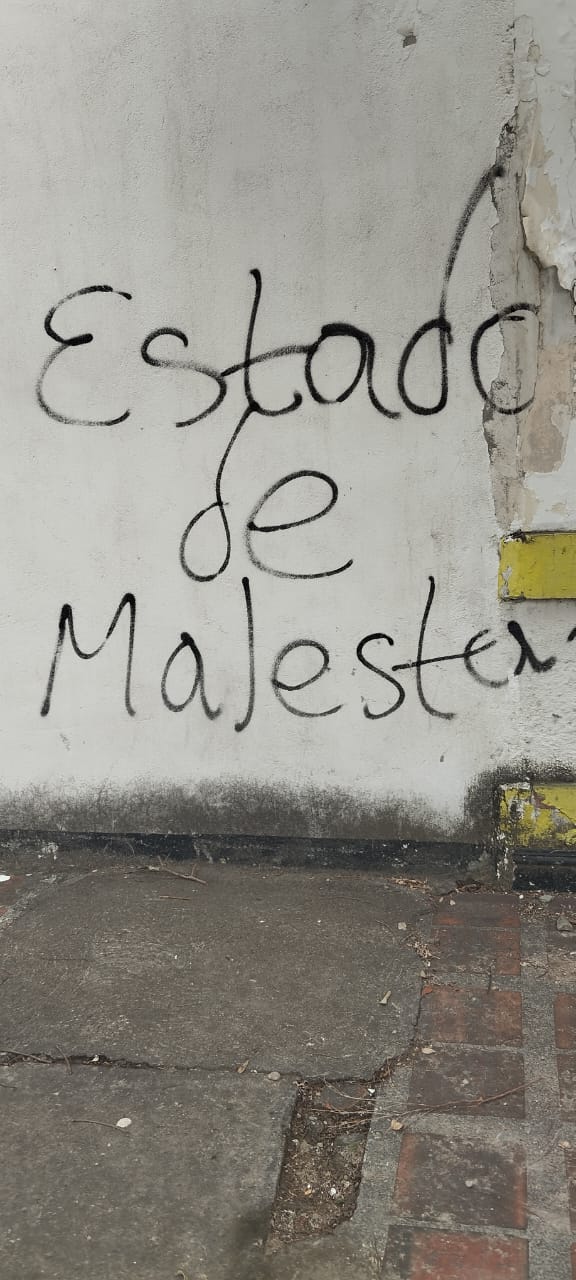 Estado
de
Malestar